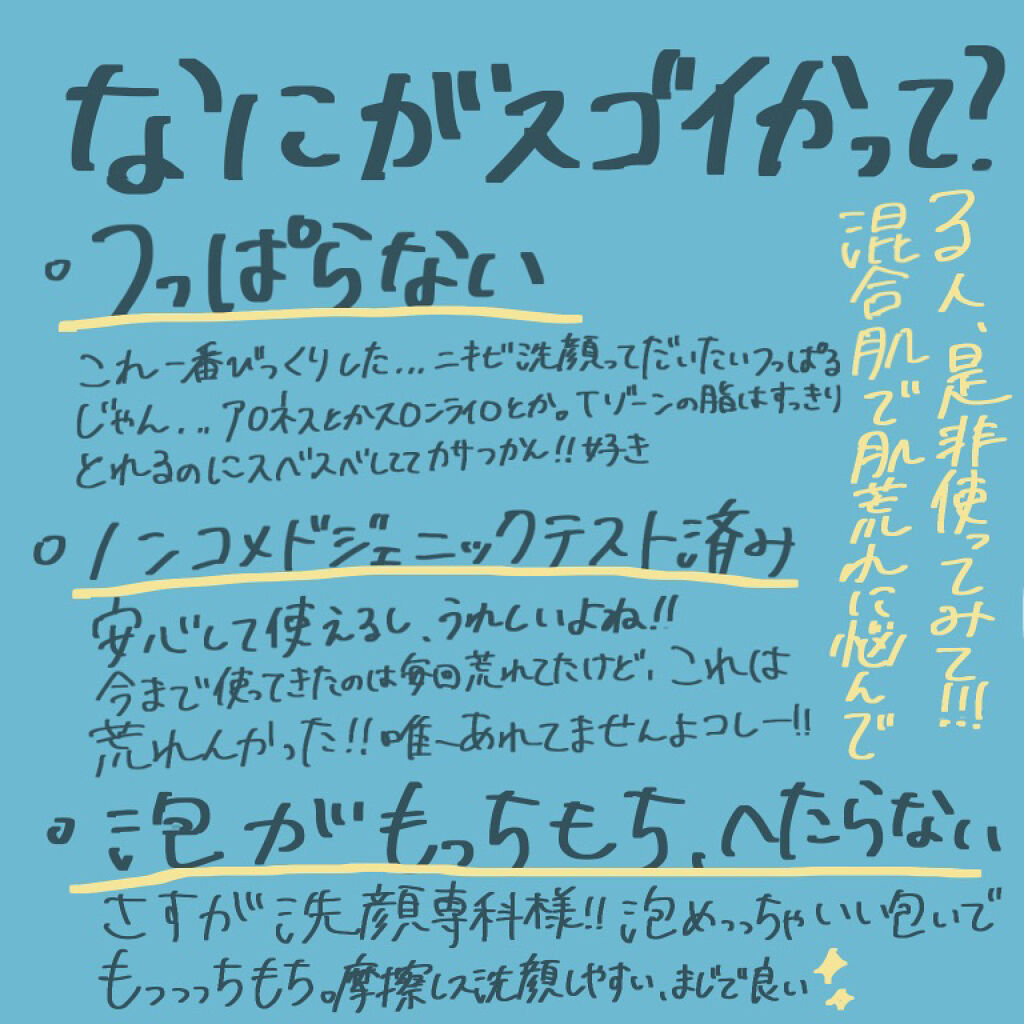 なにがスゴイかって?
○つっぱらない
これ一番びっくりした...ニキビ洗顔ってだいたいつっぱる
じゃん...アロネスとかスロンライロとか。Tゾーンの脂はすっきり
とれるのにスベスベしてて カサつかん!!好き
○ノンコメドジェニックテスト済み
安心して使えるし、うれしいよね!!
今まで使ってきたのは毎回荒れてたけど、これは
荒れんかった!!唯一あれてませんよコレー!!
○泡がもっちもち、へたらない
さすが洗顔専科様!!泡めっっちゃいい包いで
もっっっちもち。摩擦レス洗顔しやすい、まじで良い
混合肌で肌荒れに悩んで
る人、是非使ってみて!!!